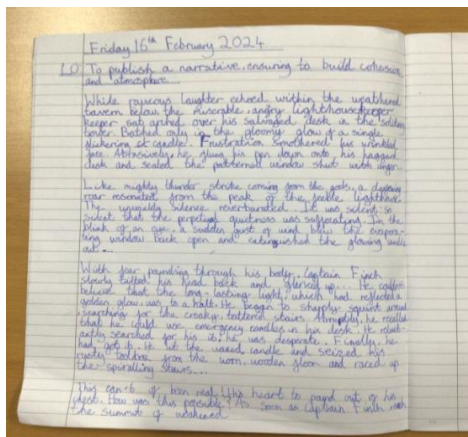 Friday 16th February 2024
LO To publish a narrative, ensuring to build cohesion
and atmosphere.
While raucous laughter echoed within the weathered
tavern below the miserable, angry lighthouse keeper
keeper sat arched over his salvaged desk in the
tower. Bathed only in the gloomy glow of a single
flickering candle. Frustration smothered his wrinkled
face. Abrasively, he flung his pen down onto his haggard
desk and sealed the patterned window shut with anger.
Like mighty thunder strike coming from the gods, a
roar resonated from the peak of the feeble lighthouse.
The unusually silence reverberated. It was silent so
silent that the perpetual quietness was suffocating. In the
blink of an eye, a sudden gust of wind blew the
ing window back open and extinguished the glowing
out...
With fear pounding through his body, Captain Finch
slowly tilted his head back and glanced up... He couldn't
believe that the long-lasting light, which had reflected a
golden glow, was to a halt. He began to sharply squint around
searching for the creaky, tattered stairs. Abruptly, he recalled
that he could use emergency candles in his desk. He
searched for his it; he was desperate. Finally, he
had got it. He lit the waxed candle and seized his
rusty toolbox from the worn, wooden floor and raced up
the spiralling stairs...
This can't of been real. His heart to pound out of his
chest. How was this possible? As soon as Captain Finch
the summit of